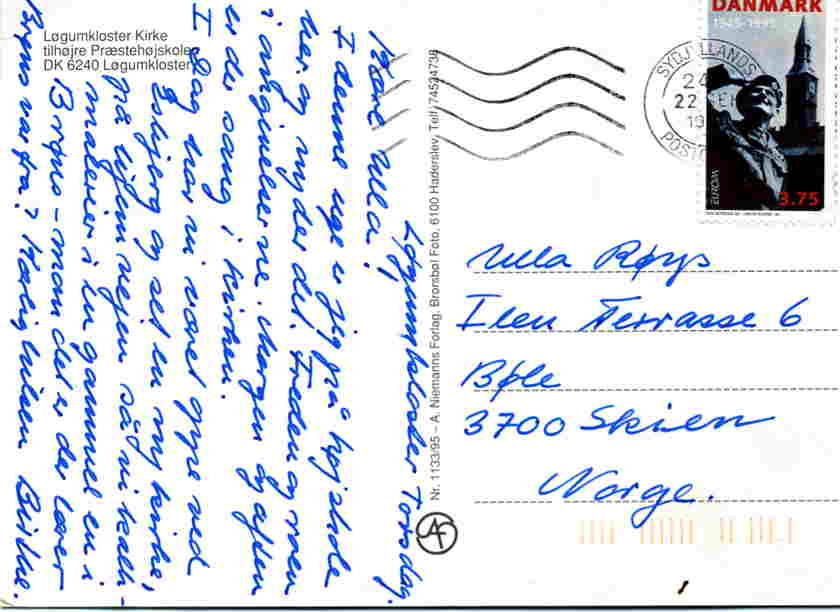 Løgumkloster Kirke
tilhøjre Præstehøjskolen
DK 6240 Løgumkloster
Løgumkloster Torsdag.
Kære Ulla!
I denne uge er jeg på højskole
her og nyder det. Freden og roen
i omgivelserne. Morgen og aften
er der sang i kirken.
I dag har vi været oppe ved
Esbjerg og set en ny kirke,
på hjemvejen så vi kalk-
malerier i en gammel en i
Brøns - mon det er der lærer
Brøns var fra? Kærlig hilsen Birthe.
Nr. 1133/95 – A. Niemanns Forlag. Brombøl Foto, 6100 Haderslev, Telf. 74524738
DANMARK
1945-1995
EUROPA
3.75
SYDJYLLANDS
24
22
19
Ulla Røys
Ilen Terrasse 6
Bøle
3700 Skien
Norge.